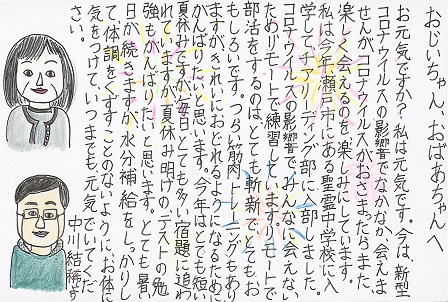 おじいちゃん、おばあちゃんへ
お元気ですか?私は元気です。今は、新型
コロナウイルスの影響でなかなか会えま
せんが、コロナウイルスがおさまったらまた、
楽しく会えるのを楽しみにしています。
私は今年瀬戸市にある聖霊中学校に入
学して、チアリーディング部に入部しました。
コロナウイルスの影響で、みんなに会えない
ためリモートで練習しています。リモートで
部活をするのは、とても斬新で、とてもお
もしろいです。つらい筋肉トレーニングもあり
ますが、きれいにおどれるようになるために
がんばりたいと思います。今年はとても短い
夏休みですが、毎日とても多い宿題に追わ
れています。夏休み明けのテストの勉
強もがんばりたいと思います。とても暑い
日が続きますが、水分補給をしっかりし
て、体調をくずすことのないように、お体に
気をつけて、いつまでも元気でいてくだ
さい。
中川結稀より